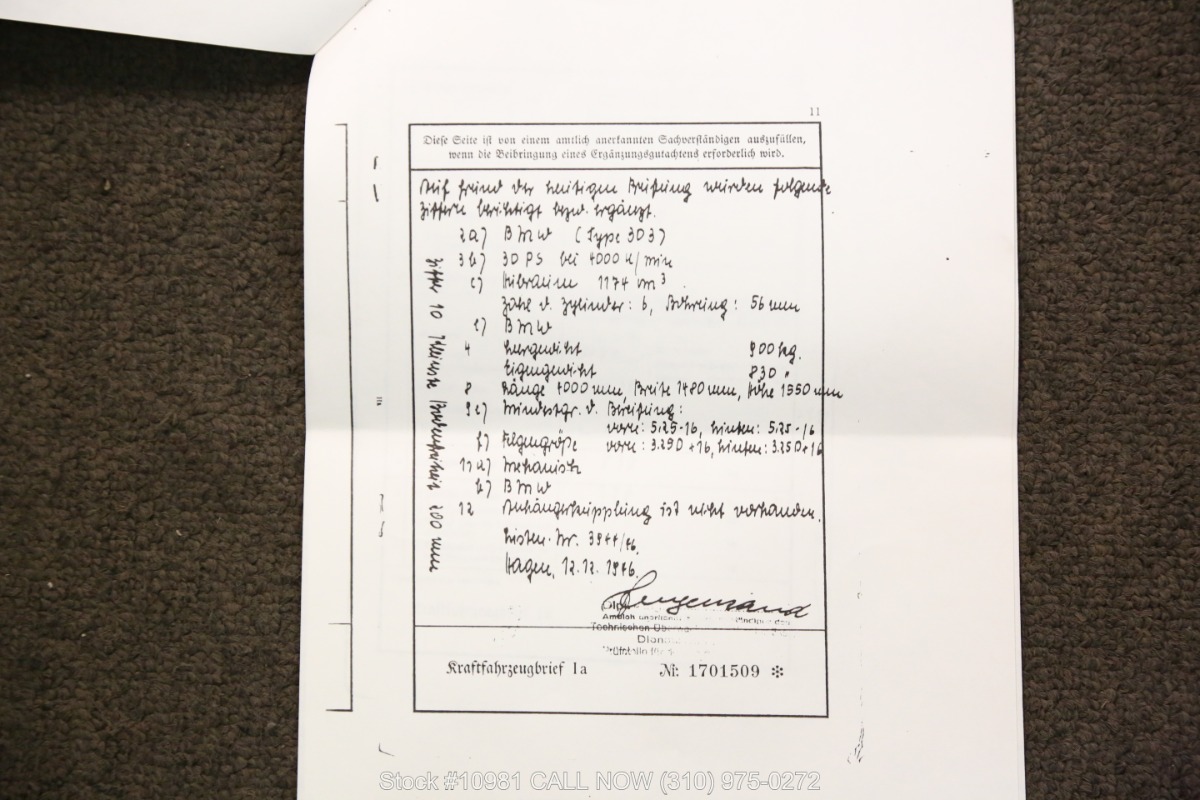 11
Diese Seite ist von einem amtlich anerkannten Sachverständigen auszufüllen,
wenn die Beibringung eines Ergänzungsgutachtens erforderlich wird.
Auf Grund der heutigen Prüfung wurden folgende
Ziffern berichtigt bezw. ergänzt.
2a) BMW (Type 303)
3b) 30 PS bei 4000 U/min
c) Hubraum 1174 cm³
Zahl d. Zylinder: 6, Bohrung: 56 mm
e) BMW
4 Leergewicht 900 kg.
Eigengewicht 830 "
8 Länge 4000 mm, Breite 1480 mm, Höhe 1550 mm
9e) Mindestgr. d. Bereifung:
vorn: 5,25-16, hinten: 5,25-16
f) Felgengröße vorn: 3.25D×16, hinten: 3.25D×16
11a) Mechanisch
b) BMW
12 Anhängerkupplung ist nicht vorhanden.
Listen-Nr. 3944/46.
Hagen, 12.12.1946.
Ziffer 10 Kleinste Bodenfreiheit 200 mm
Dipl.
Amtlich
Technischen
Kraftfahrzeugbrief Ia Nr. 1701509 ❇
Stock #10981 CALL NOW (310) 975-0272